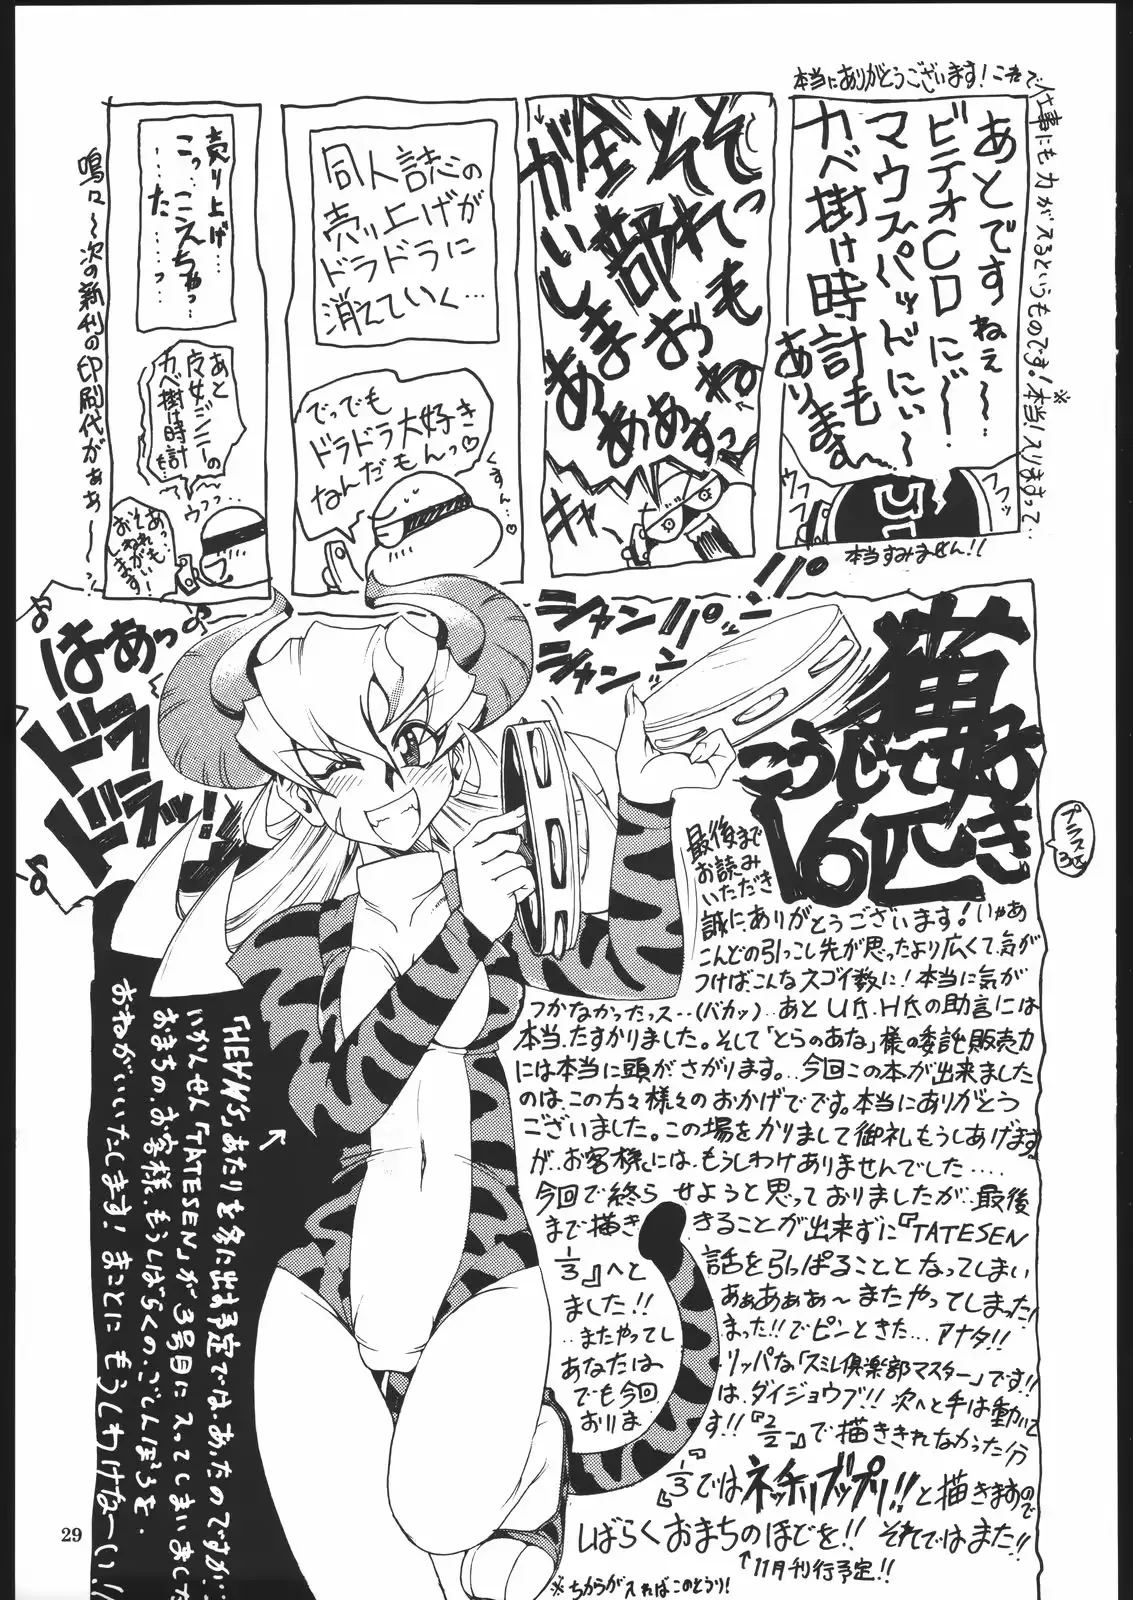 本当にありがとうございます！これで仕事にも力が入るというものです！※本当！入りまさって‥
あとですねぇ〜
ビデオCDにぃ〜
マウスパッドにぃ〜
カベ掛け時計も
ありますぅ〜
ウフッ
フッフッ
本当すみません！！
そそれっもぉねっ
全部おぉあぁすっ
がいしまあぁ
キャー
同人誌の
売り上げが
ドラドラに
消えていく…
でっでも
ドラドラ大好き
なんだもんっ♡
くすん…♡
売り上げ…
こっ…こえちゃっ…
……た……っ
あと
皮女ジニーの
カベ掛け時計も
ウッ…
あっ
それも
おねがい
します！
鳴々〜次の新刊の印刷代がぁぁ〜〜っ
はあっ♪
ドラ
ドラッ！！
シャンシャン
シャンシャン
パンパン！！
猫好き
こうじて
16匹
プラス
3匹
最後まで
お読み
いただき
誠にありがとうございます！いやあ
こんどの引っこし先が思ったより広くて、気が
つけば、こんなスゴイ数に！本当に気が
つかなかったっス‥(バカッ)‥あとU氏、H氏の助言には
本当、たすかりました。そして「とらのあな」様の委託販売力
には本当に頭がさがります。‥今回この本が出来ました
のは、この方々様々のおかげでです。本当にありがとう
ございました。この場をかりまして御礼もうしあげます。
が‥お客様には、もうしわけありませんでした‥‥
今回で終らせようと思っておりましたが‥最後
まで描ききることが出来ずに『TATESEN
1/3』へと話を引っぱることとなってしまい
ました！！あぁあぁぁ〜またやってしまった！
‥またやってしまった！！でピンときた…アナタ！！
あなたはリッパな「スミレ倶楽部マスター」です！！
でも今回は、ダイジョウブ！！次へと手は動いて
おります！！『2/2』で描ききれなかった1分
『1/3』ではネッチリズップリ！！と描きますので
しばらくおまちのほどを！！それではまた！！
↑11月刊行予定！！
※ちからが入ればこのとうり！
「HEAVN'S」あたりを冬に出す予定では、あったのですが‥
いかんせん「TATESEN」が3号目に入ってしまいました
おまちの、お客様、もうしばらくの、ごしんぼうを、
おねがいいたします！まことにもうしわけなーい！！
29